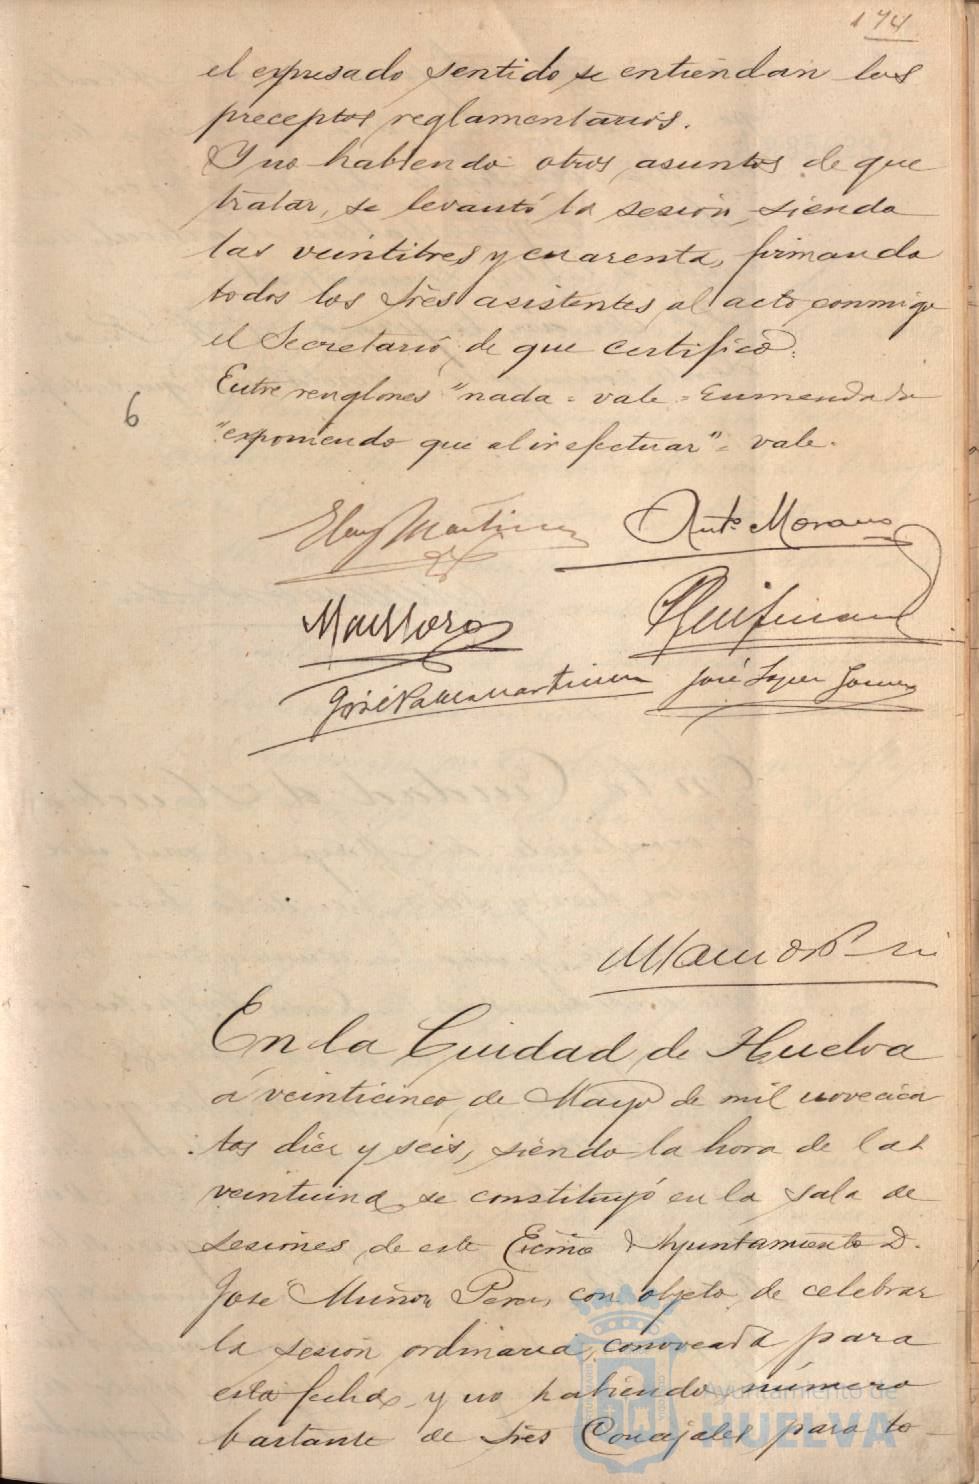 174
el expresado sentido se entiendan los
preceptos reglamentarios.
Y no habiendo otros asuntos de que
tratar, se levantó la sesión, siendo
las veintitres y cuarenta, firmando
todos los Sres asistentes al acto conmigo
el Secretario, de que certifico.
Entre renglones "nada = vale = Enmendado
6
"exponiendo que al ir efectuar" = vale.
Eloy Martinez
Antº Moreno
José Lopez Gomez
En la Ciudad de Huelva
á veinticinco de Mayo de mil novecien
tos diez y seis, siendo la hora de las
veintiuna se constituyó en la sala de
sesiones de este Excmo Ayuntamiento D.
José Muñoz Perez, con objeto de celebrar
la sesión ordinaria convocada para
esta fecha y no habiendo número
bastante de Sres Concejales para to
Ayuntamiento de
HUELVA